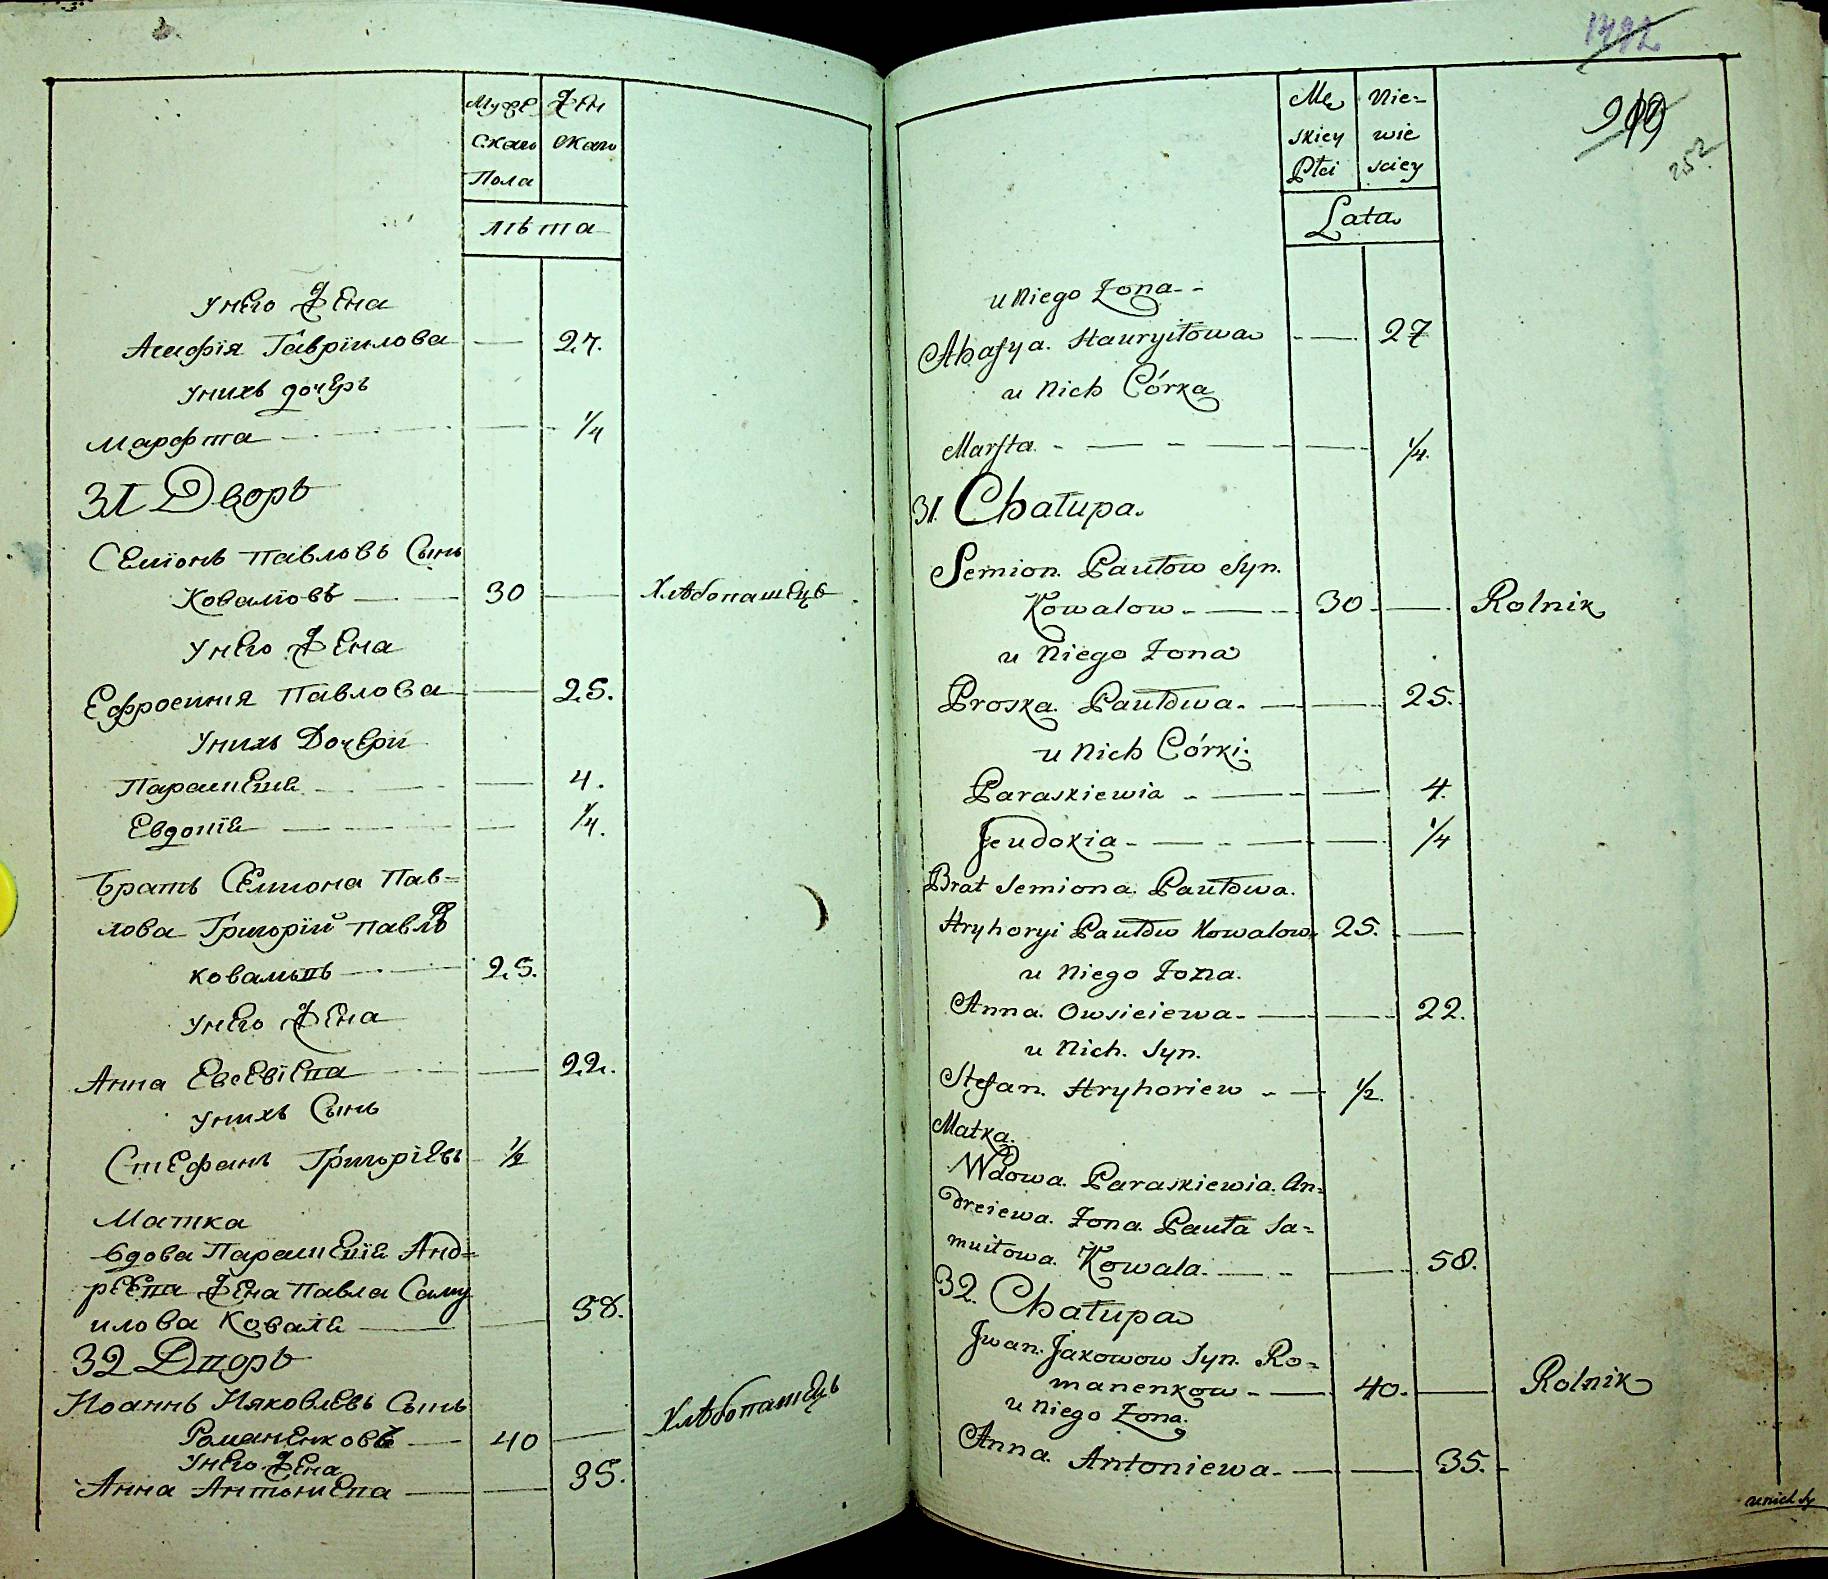 Муже
скаго
Пола
Жен
скаго
лѣта
унего Жена
Агафія Гаврiилова 27.
унихъ дочеръ
Марфта 1/4
31 Дворъ
Семіонъ Павловъ Сынъ
Ковалювъ 30 Хлѣбопашецъ
унего Жена
Ефросинія Павлова 25.
унихъ Дочери
4.
Евдокіа 1/4.
Братъ Семиона Пав=
лова Григорїй Павлв
25.
унего Жена
Анна 22.
унихъ Сынъ
Стефанъ Григорїевъ 1/2
Матка
вдова Анд=
Жена Павла Саму
илова Коваля 58.
32 Дворъ
Иоаннъ Ияковлевъ Сынъ
Романенковъ 40 Хлѣбопашецъ
унего Жена
Анна Антониева 35.
1492
252
Mę
skiey
Płci
Nie=
wie
sciey
Lata
u Niego Żona
Ahafya Hauryiłowa 27
u Nich Córka
Marfta 1/4.
31. Chałupa.
Semion Paułow Syn.
Kowalow 30 Rolnik
u Niego Żona
Proska Paułowa 25.
u Nich Córki.
Paraskiewia 4.
Jeudokia 1/4
Brat Semiona Paułowa.
Hryhoryi Paułow Kowalow 25.
u Niego Żona.
Anna Owsieiewa 22.
u Nich Syn.
Stefan Hryhoriew 1/2.
Matka.
Wdowa Paraskiewia An=
dreiewa Żona Pauła Sa=
muiłowa Kowala 58.
32. Chałupa
Jwan Jakowow Syn Ro=
manenkow 40. Rolnik
u Niego Żona.
Anna Antoniewa 35.
unich Sy